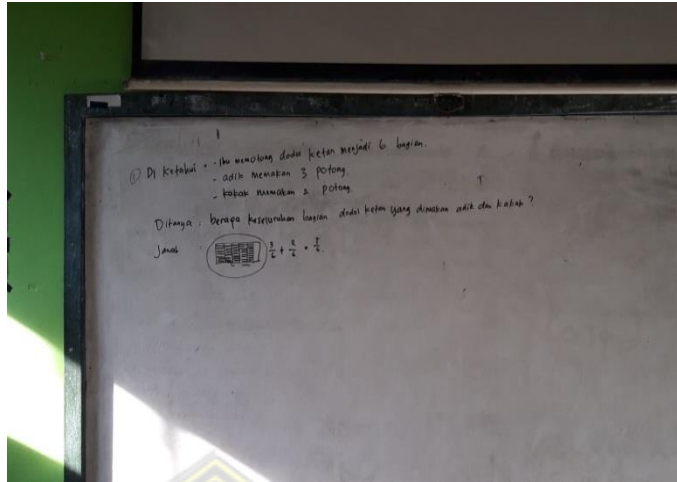 ① Di ketahui = - Ibu memotong dodol ketan menjadi 6 bagian.
- adik memakan 3 potong.
- kakak memakan 2 potong.
Ditanya : berapa keseluruhan bagian dodol ketan yang dimakan adik dan kakak ?
Jawab : 3/6 + 2/6 = 5/6.